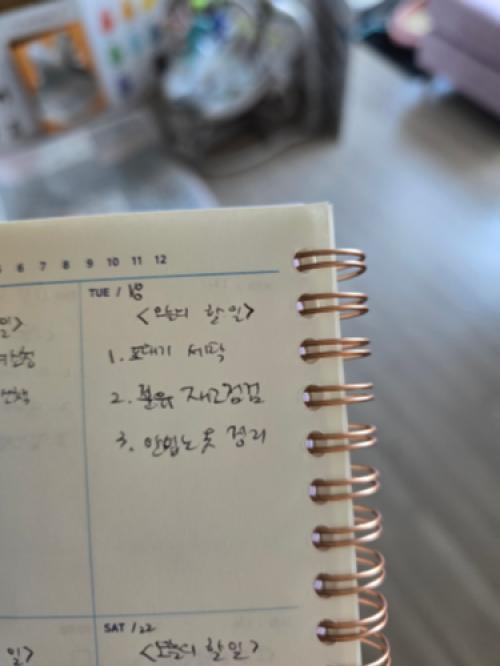 6 7 8 9 10 11 12
TUE / 18
<오늘의 할일>
1. 포대기 세탁
2. 분유 재고점검
3. 안입는 옷 정리
일>
SAT / 22
<오늘의 할일>
일>